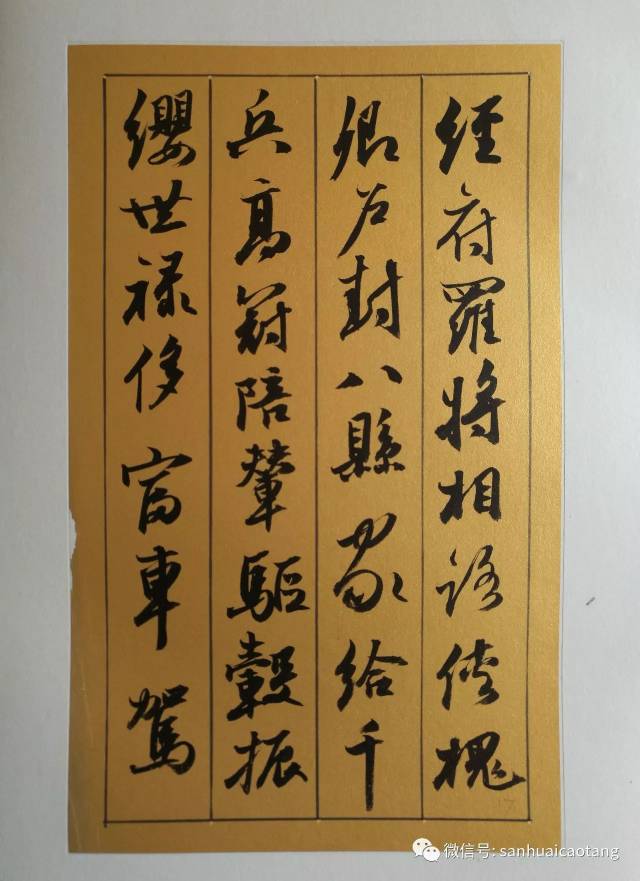 經府羅將相路俠槐
卿戶封八縣家給千
兵高冠陪輦驅轂振
纓世祿侈富車駕
17
微信号: sanhuaicaotang